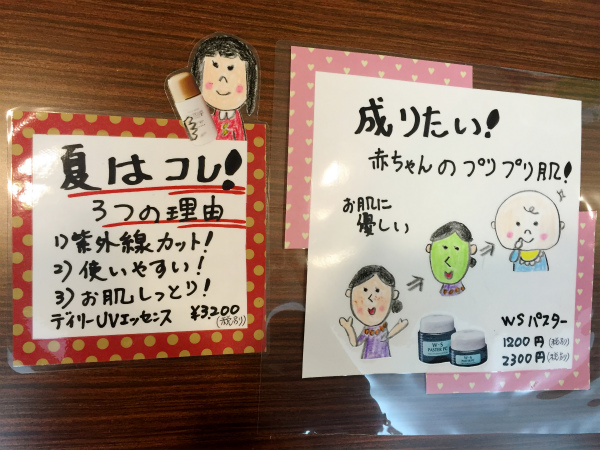 夏はコレ!
3つの理由
1)紫外線カット!
2)使いやすい!
3)お肌しっとり!
デイリーUVエッセンス ¥3200
成りたい!
赤ちゃんのプリプリ肌!
お肌に
優しい
W・S
WSパスター
1200円
2300円